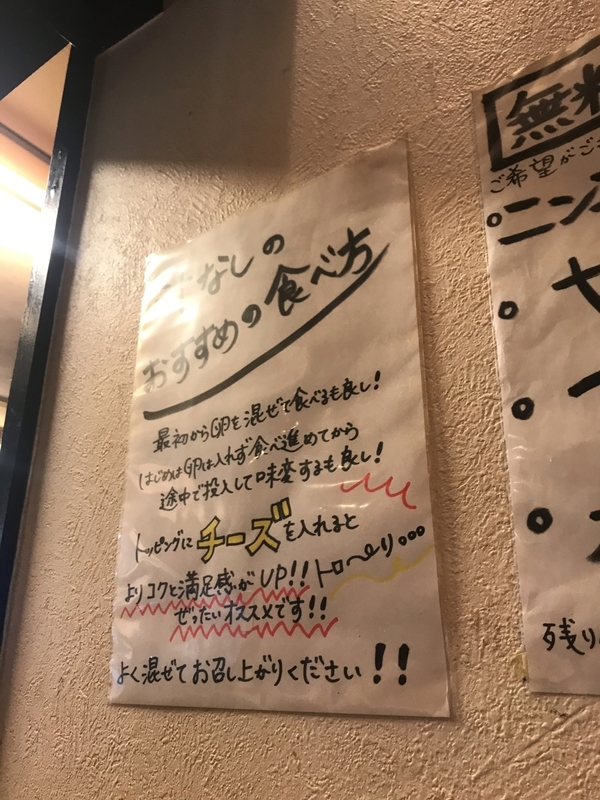 汁なしの
おすすめの食べ方
最初から卵を混ぜて食べるも良し!
はじめは卵は入れず食べ進めてから
途中で投入して味変するも良し!
トッピングにチーズを入れると
よりコクと満足感がUP!!トロ〜リ...
ぜったいオススメです!!
よく混ぜてお召し上がりください!!
無料
ご希望がご
ニン
残り